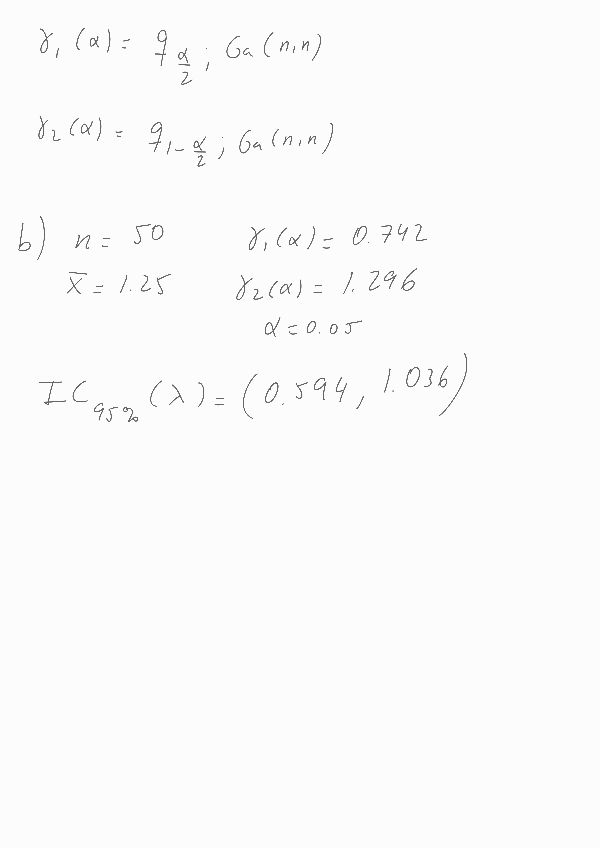 γ₁(α) = q_{α/2}; Ga(n,n)
γ₂(α) = q_{1-α/2}; Ga(n,n)
b) n = 50 γ₁(α) = 0.742
x̄ = 1.25 γ₂(α) = 1.296
α = 0.05
IC_{95%}(λ) = (0.594, 1.036)